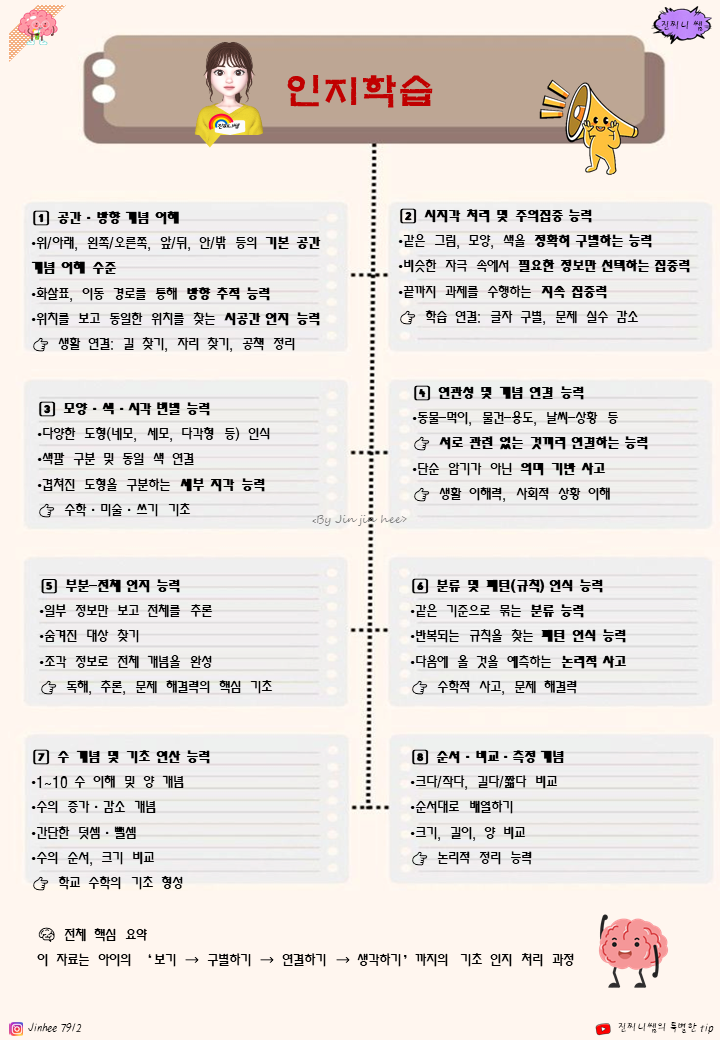 진찌니 쌤
인지학습
진찌니쌤
1 공간·방향 개념 이해
•위/아래, 왼쪽/오른쪽, 앞/뒤, 안/밖 등의 기본 공간
개념 이해 수준
•화살표, 이동 경로를 통해 방향 추적 능력
•위치를 보고 동일한 위치를 찾는 시공간 인지 능력
👉 생활 연결: 길 찾기, 자리 찾기, 공책 정리
2 시지각 처리 및 주의집중 능력
•같은 그림, 모양, 색을 정확히 구별하는 능력
•비슷한 자극 속에서 필요한 정보만 선택하는 집중력
•끝까지 과제를 수행하는 지속 집중력
👉 학습 연결: 글자 구별, 문제 실수 감소
3 모양·색·시각 변별 능력
•다양한 도형(네모, 세모, 다각형 등) 인식
•색깔 구분 및 동일 색 연결
•겹쳐진 도형을 구분하는 세부 지각 능력
👉 수학·미술·쓰기 기초
4 연관성 및 개념 연결 능력
•동물–먹이, 물건–용도, 날씨–상황 등
👉 서로 관련 있는 것끼리 연결하는 능력
•단순 암기가 아닌 의미 기반 사고
👉 생활 이해력, 사회적 상황 이해
<By Jin jin hee>
5 부분–전체 인지 능력
•일부 정보만 보고 전체를 추론
•숨겨진 대상 찾기
•조각 정보로 전체 개념을 완성
👉 독해, 추론, 문제 해결력의 핵심 기초
6 분류 및 패턴(규칙) 인식 능력
•같은 기준으로 묶는 분류 능력
•반복되는 규칙을 찾는 패턴 인식 능력
•다음에 올 것을 예측하는 논리적 사고
👉 수학적 사고, 문제 해결력
7 수 개념 및 기초 연산 능력
•1~10 수 이해 및 양 개념
•수의 증가·감소 개념
•간단한 덧셈·뺄셈
•수의 순서, 크기 비교
👉 학교 수학의 기초 형성
8 순서·비교·측정 개념
•크다/작다, 길다/짧다 비교
•순서대로 배열하기
•크기, 길이, 양 비교
👉 논리적 정리 능력
전체 핵심 요약
이 자료는 아이의 ‘보기 → 구별하기 → 연결하기 → 생각하기’까지의 기초 인지 처리 과정
Jinhee 7912
진찌니쌤의 특별한 tip